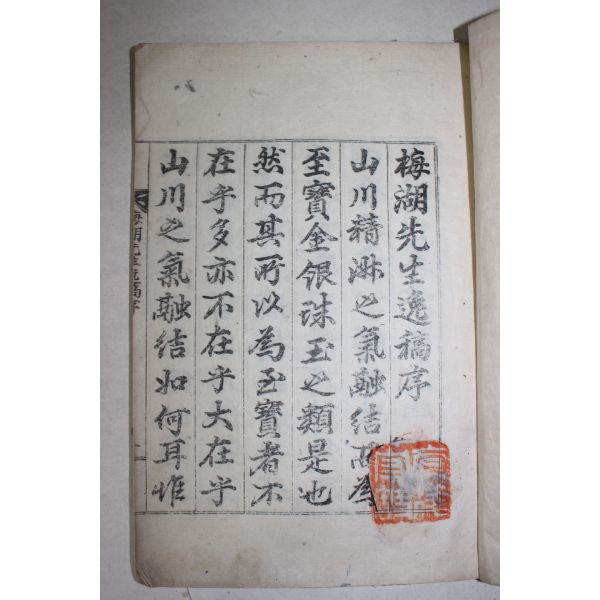 梅湖先生逸稿序
山川精淋之氣融結而爲
至寶金銀珠玉之類是也
然而其所以為至寶者不
在乎多亦不在乎大在乎
山川之氣融結如何耳惟
梅湖先生逸稿序